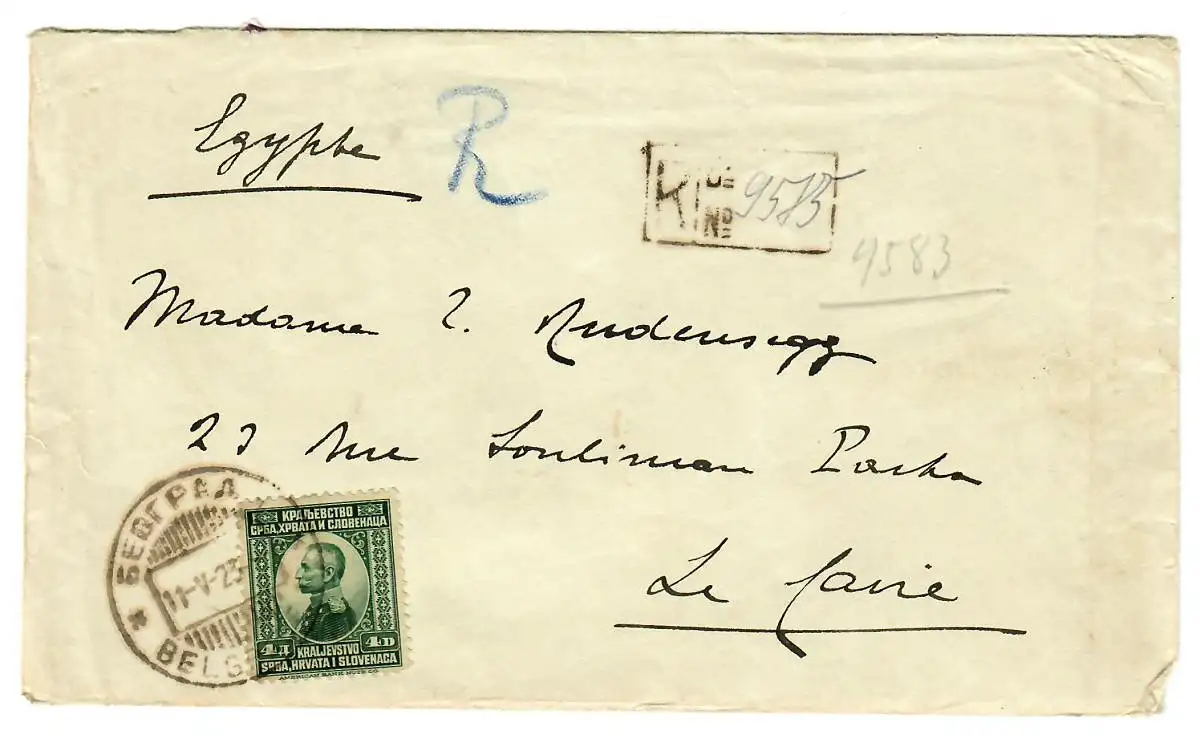 Egypte
R
R
№ 9583
№
9583
Madame
23 rue Souliman Pasha
Le Caire
БЕОГРАД
11-V-23
BELG
КРАЉЕВСТВО
СРБА, ХРВАТА И СЛОВЕНАЦА
4 Д
4 D
KRALJEVSTVO
SRBA, HRVATA I SLOVENACA
AMERICAN BANK NOTE CO.